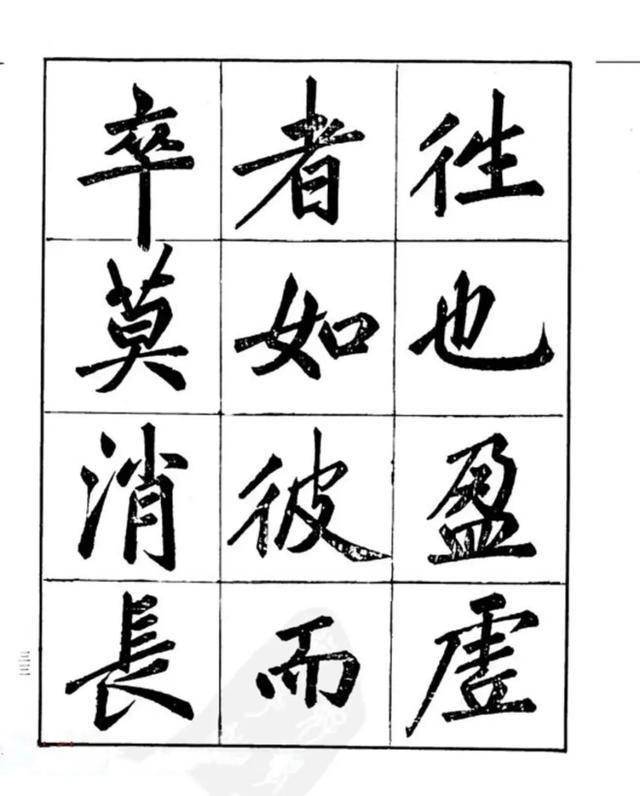 往也盈虛
者如彼而
卒莫消長